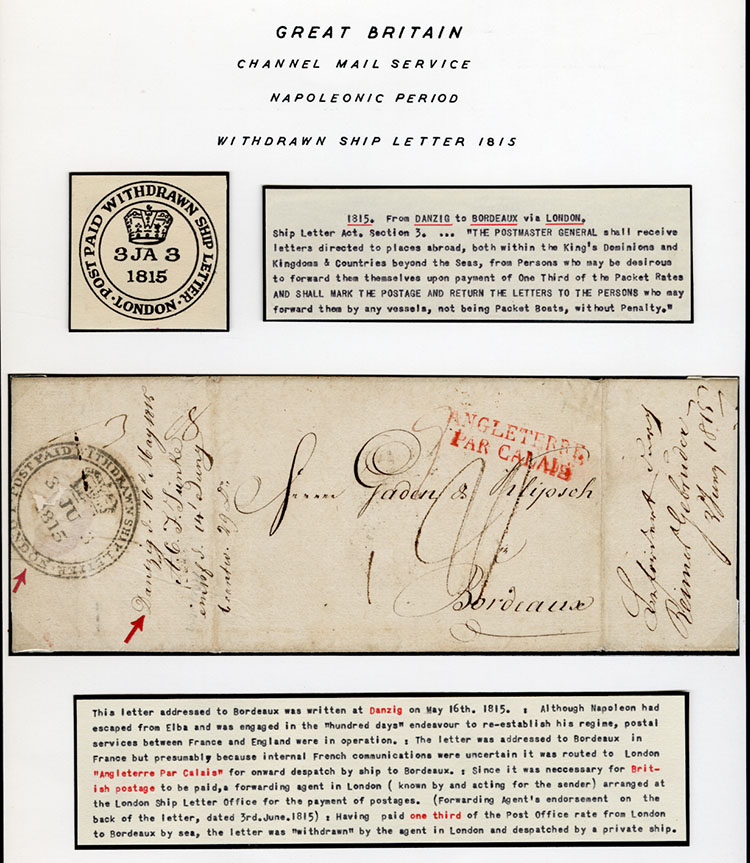 GREAT BRITAIN
CHANNEL MAIL SERVICE
NAPOLEONIC PERIOD
WITHDRAWN SHIP LETTER 1815
POST PAID WITHDRAWN SHIP LETTER
3 JA 3
1815
·LONDON·
1815. From DANZIG to BORDEAUX via LONDON.
Ship Letter Act. Section 3. ... "THE POSTMASTER GENERAL shall receive
letters directed to places abroad, both within the King's Dominions and
Kingdoms & Countries beyond the Seas, from Persons who may be desirous
to forward them themselves upon payment of One Third of the Packet Rates
AND SHALL MARK THE POSTAGE AND RETURN THE LETTERS TO THE PERSONS who may
forward them by any vessels, not being Packet Boats, without Penalty."
POST PAID WITHDRAWN SHIP LETTER
3 JU
1815
Dantzig d. 16 May 1815
ANGLETERRE
PAR CALAIS
Herren Gaden & Klipsch
Bordeaux
1815
This letter addressed to Bordeaux was written at Danzig on May 16th. 1815. : Although Napoleon had
escaped from Elba and was engaged in the "hundred days" endeavour to re-establish his regime, postal
services between France and England were in operation. : The letter was addressed to Bordeaux in
France but presumably because internal French communications were uncertain it was routed to London
"Angleterre Par Calais" for onward despatch by ship to Bordeaux. : Since it was neccessary for Brit-
ish postage to be paid,a forwarding agent in London ( known by and acting for the sender) arranged at
the London Ship Letter Office for the payment of postages. (Forwarding Agent's endorsement on the
back of the letter, dated 3rd.June.1815) : Having paid one third of the Post Office rate from London
to Bordeaux by sea, the letter was "withdrawn" by the agent in London and despatched by a private ship.